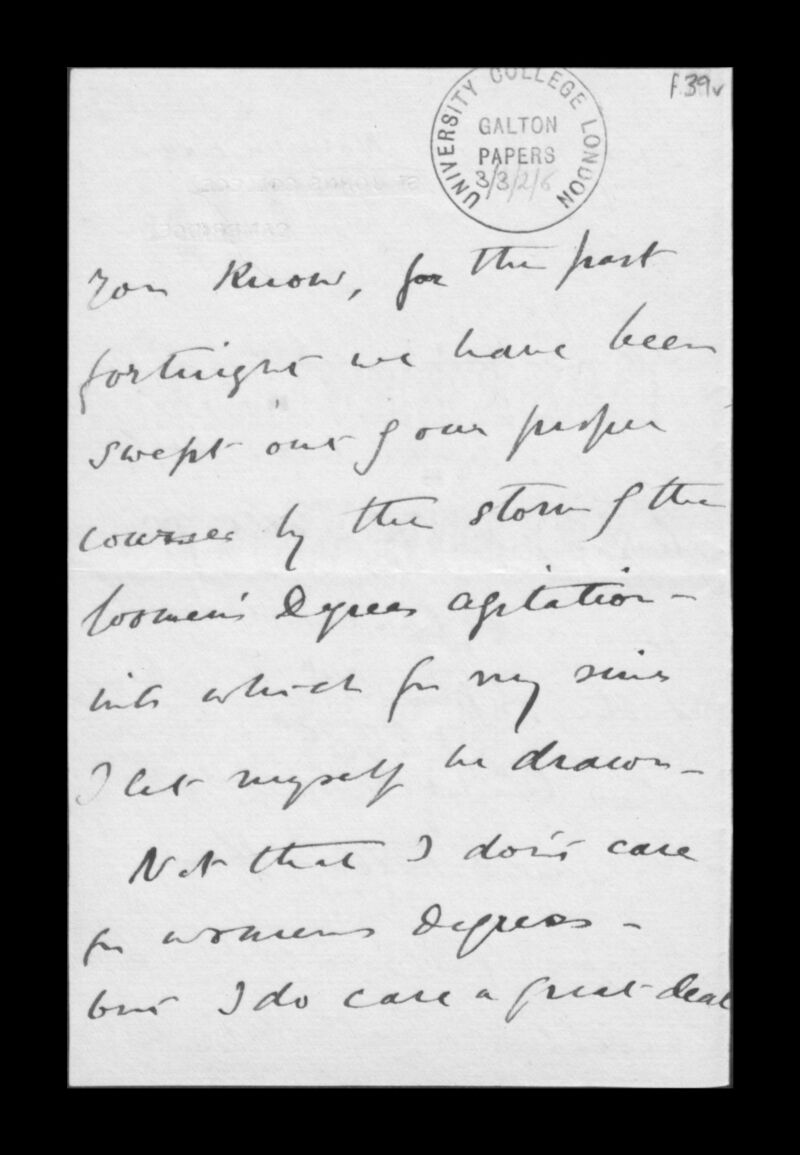 f.39v
UNIVERSITY COLLEGE LONDON
GALTON
PAPERS
3/3/2/6
You know, for the past
fortnight we have been
swept out of our proper
courses by the storm of the
Women's Degrees agitation –
into which for my sins
I let myself be drawn –
Not that I don't care
for women's Degrees –
but I do care a great deal